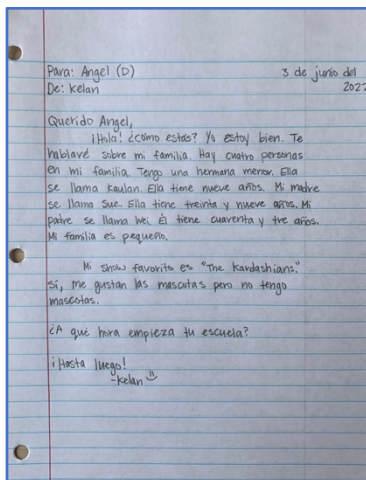 Para: Angel (D) 3 de junio del
De: Kelan 2022
Querido Angel,
¡Hola! ¿cómo estás? Yo estoy bien. Te
hablaré sobre mi familia. Hay cuatro personas
en mi familia. Tengo una hermana menor. Ella
se llama Kaulan. Ella tiene nueve años. Mi madre
se llama Sue. Ella tiene treinta y nueve años. Mi
padre se llama Wei. Él tiene cuarenta y tre años.
Mi familia es pequeño.
Mi show favorito es "The Kardashians."
Sí, me gustan las mascotas pero no tengo
mascotas.
¿A qué hora empieza tu escuela?
¡Hasta luego!
-Kelan